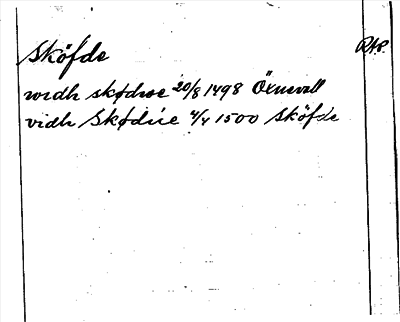 Sköfde RAp.
widh skødwe 20/8 1498 Öxnevall
vidh Skødúe 4/4 1500 Sköfde